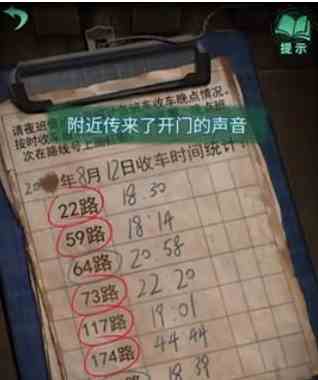 提示
请夜班
收车收车晚点情况。
按时收车
次在路线号上
附近传来了开门的声音
年8月12日收车时间统计
22路 18:30
59路 18:14
64路 20:58
73路 22 20
117路 19:01
174路 44 44
路 18 39